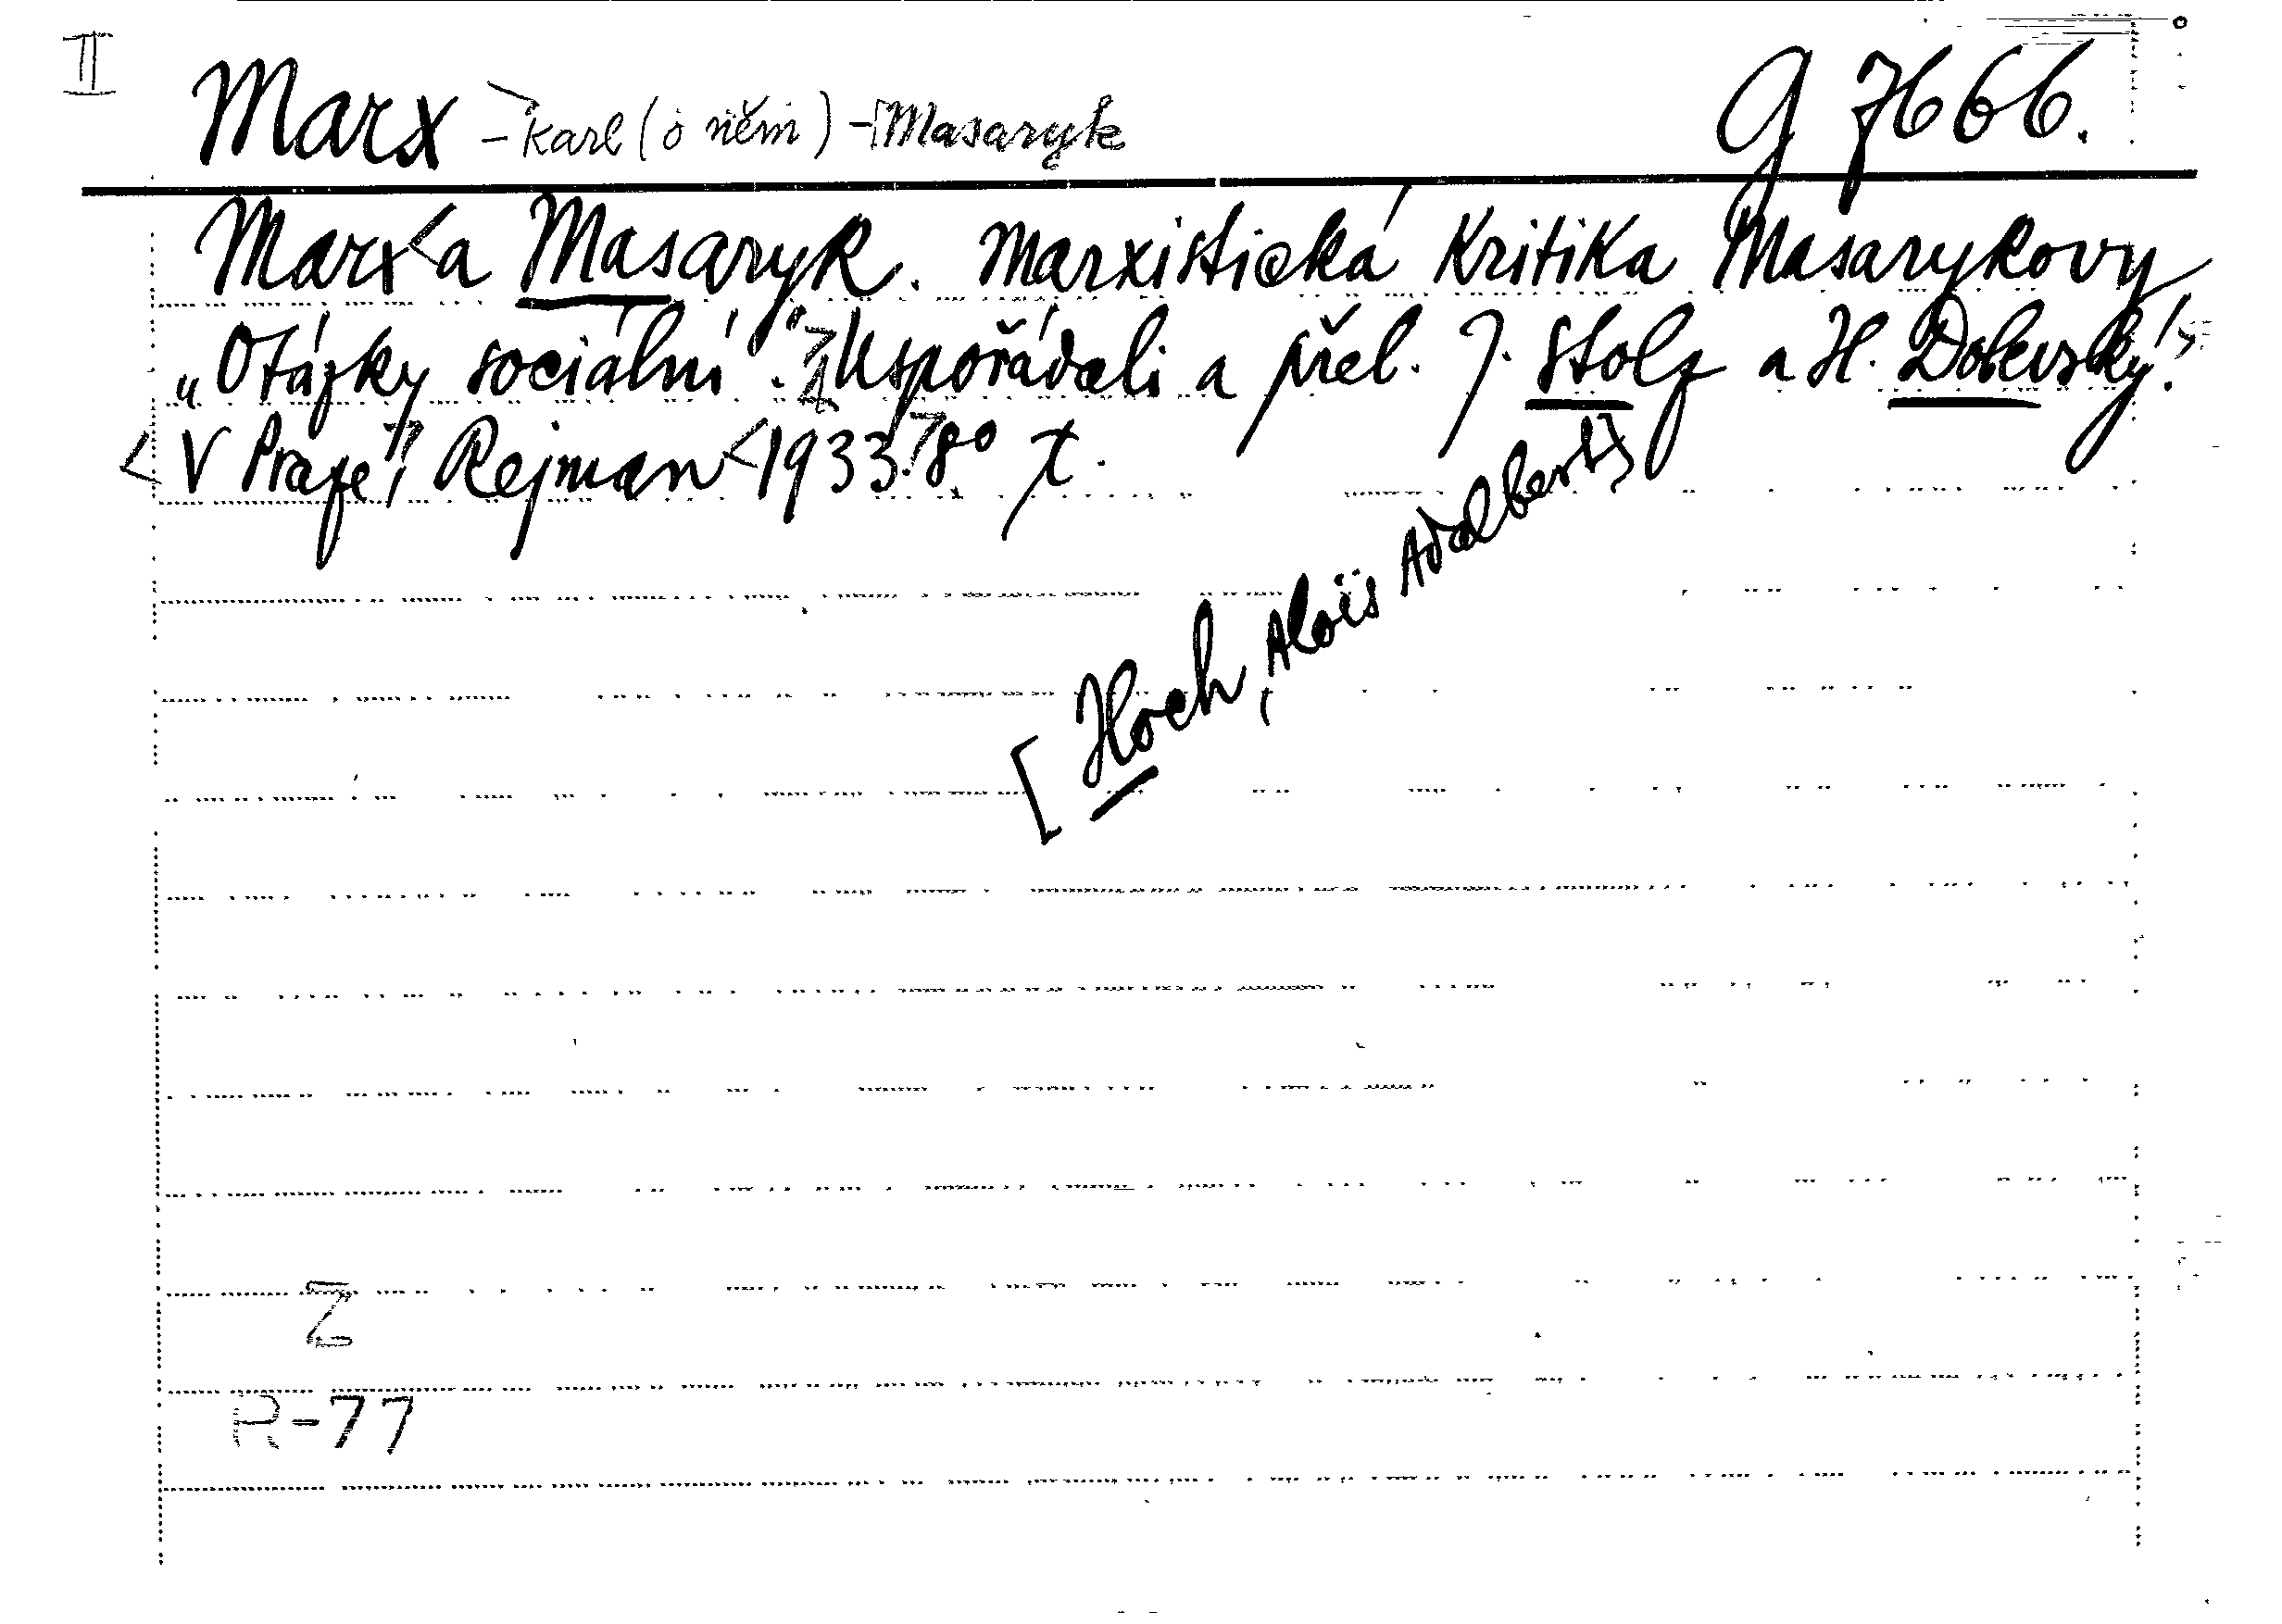 II
Marx - Karl (o něm) - Masaryk G 7666.
Marx a Masaryk. Marxistická kritika Masarykovy
„Otázky sociální“. Uspořádali a přel. J. Stolz a H. Dolevský.
V Praze, Rejman 1933. 8° t.
[Hoch, Alois Adalbert]
Z
R-77